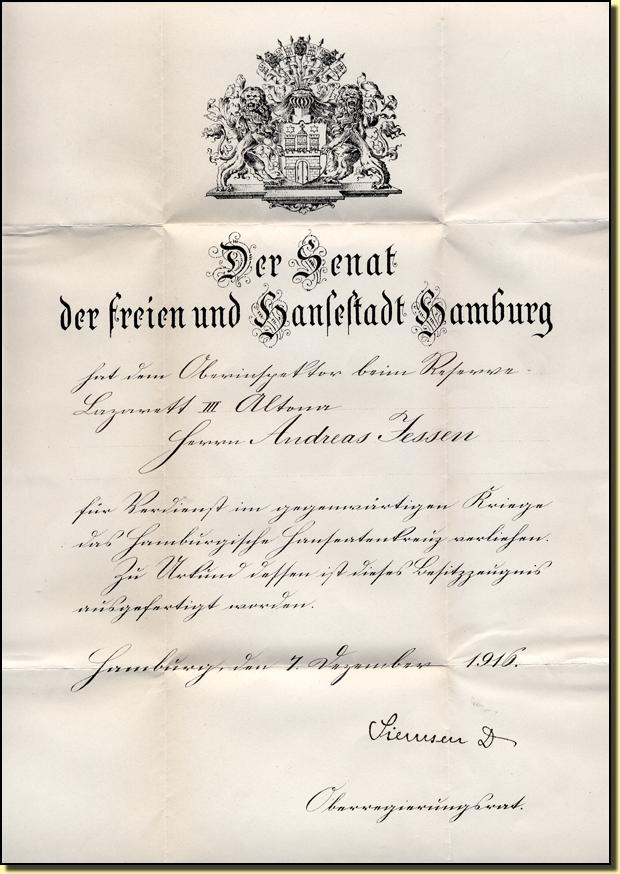 Der Senat
der freien und Hansestadt Hamburg
hat dem Oberinspektor beim Reserve-
Lazarett III Altona
Herrn Andreas Jessen
für Verdienst im gegenwärtigen Kriege
das Hamburgische Hanseatenkreuz verliehen.
Zu Urkund dessen ist dieses Besitzzeugnis
ausgefertigt worden.
Hamburg, den 7. Dezember 1916.
Siemsen D
Oberregierungsrat.